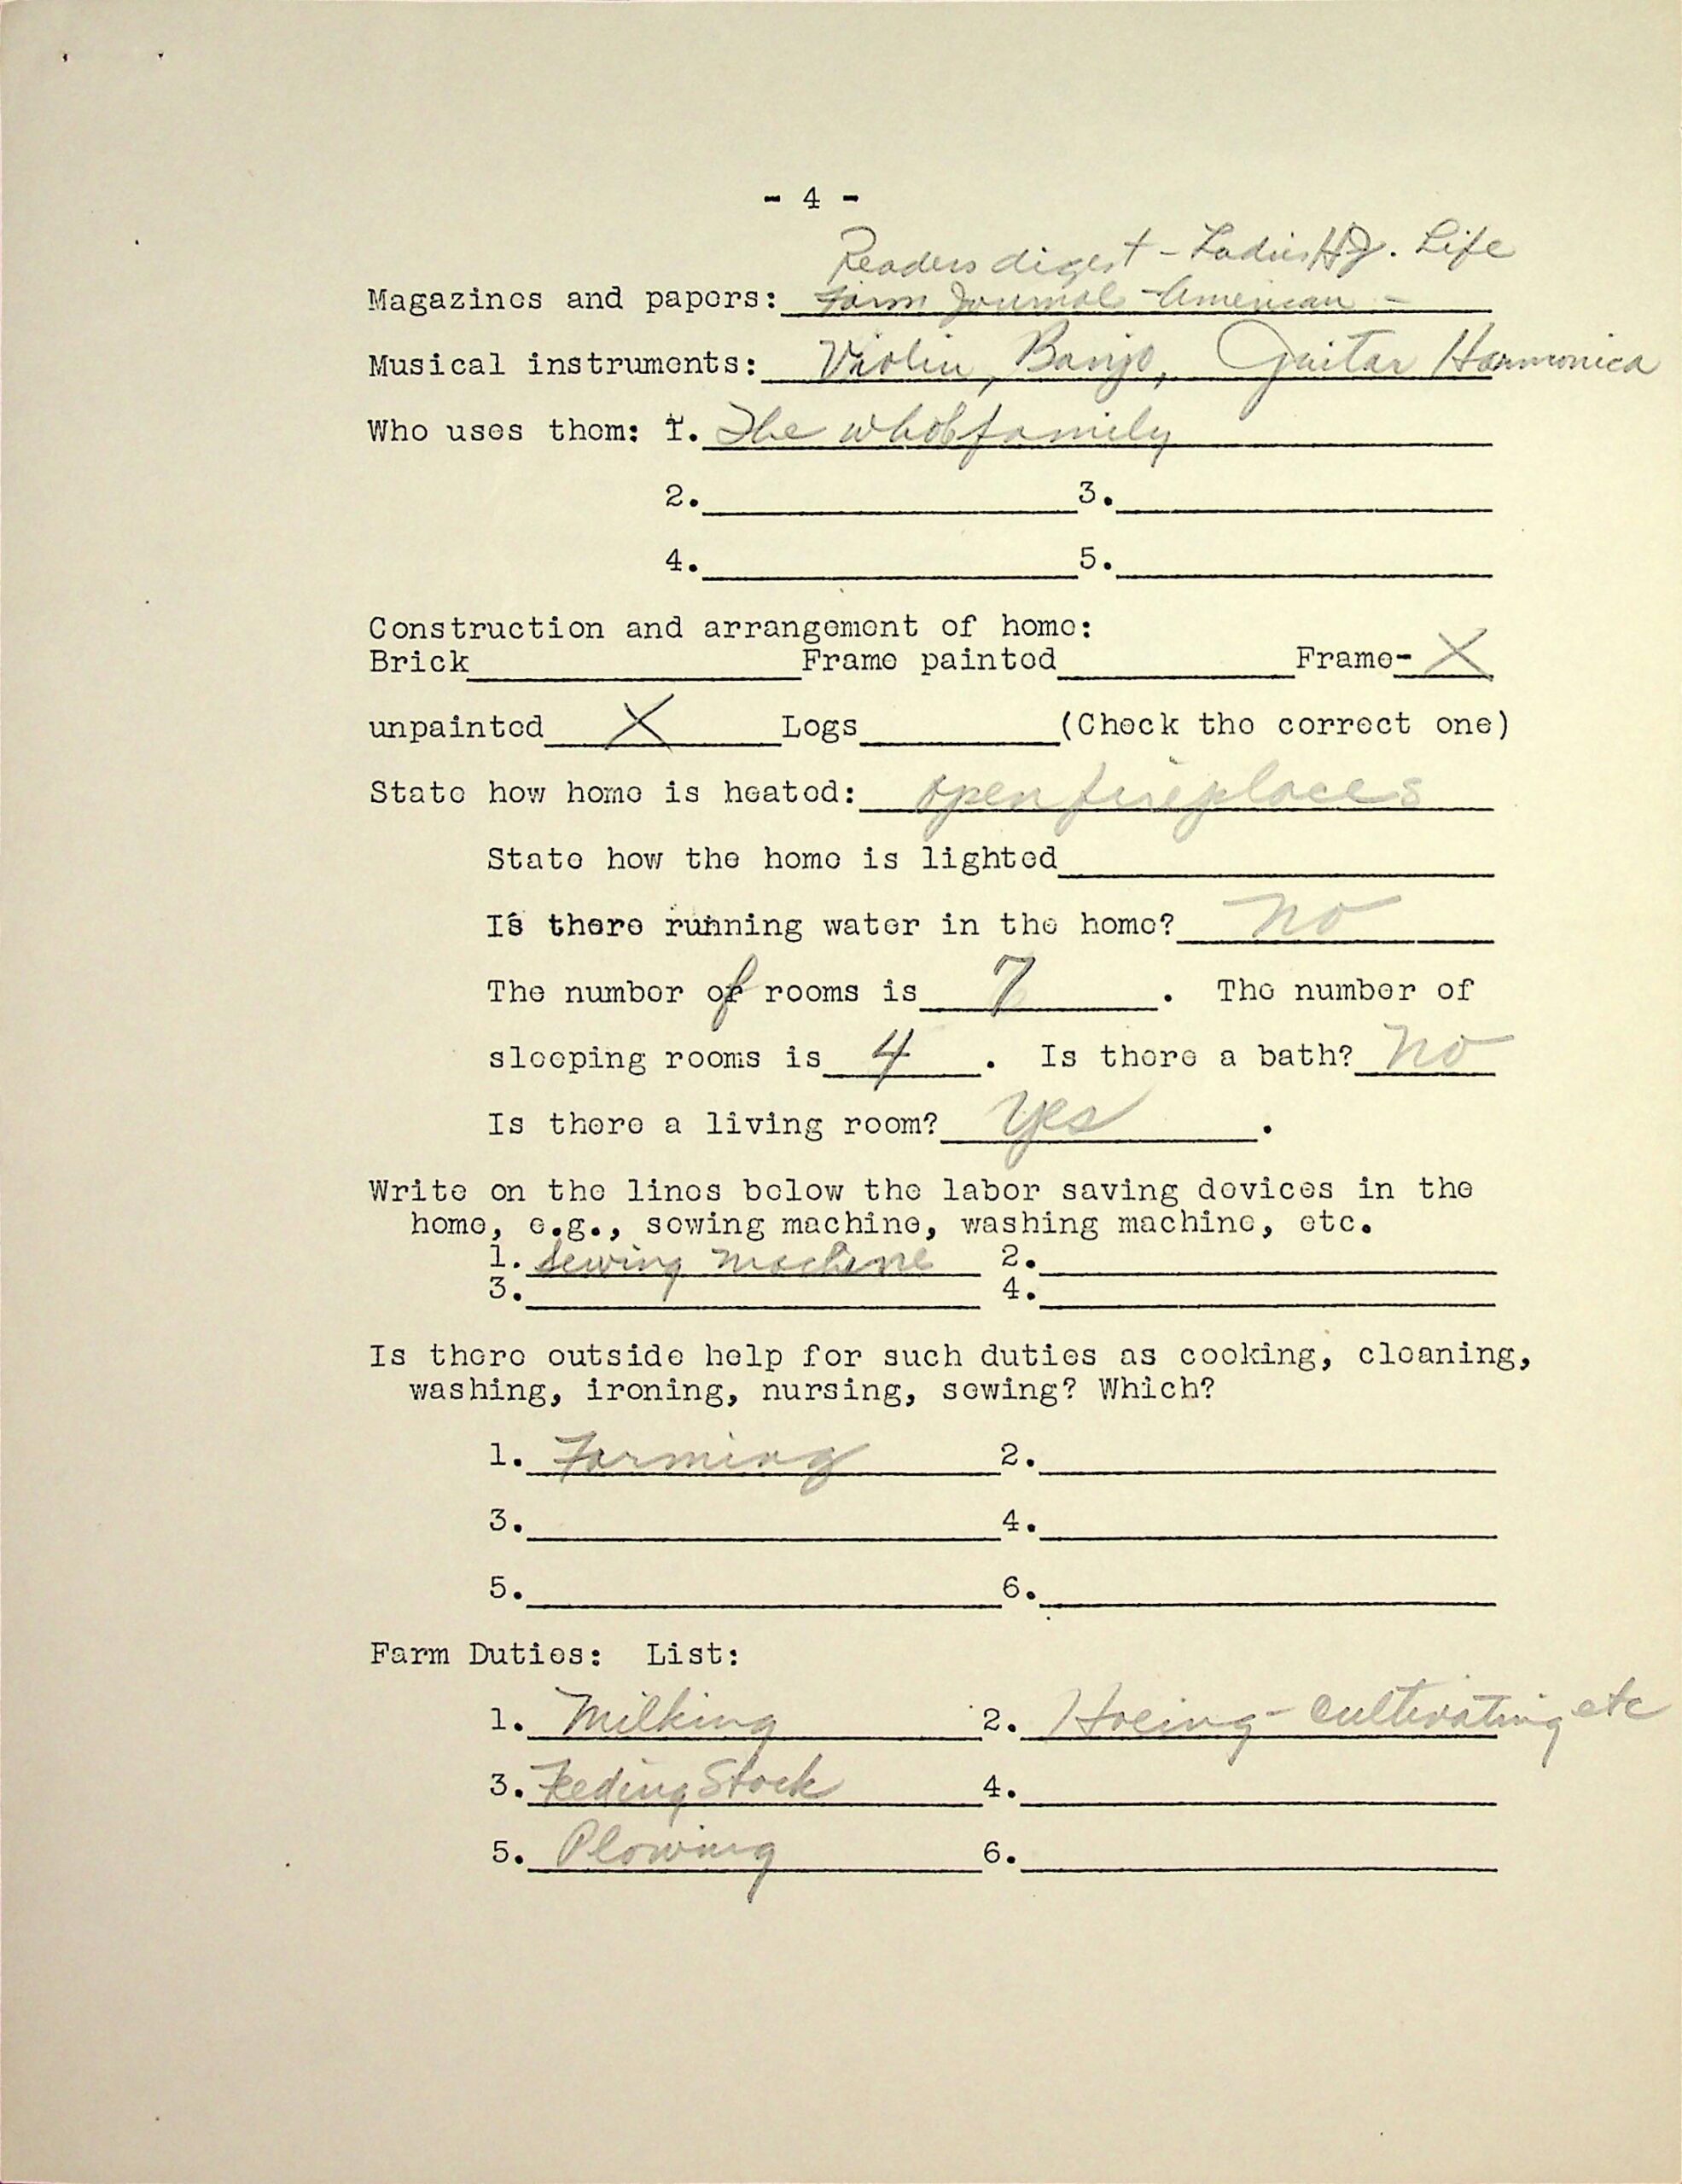 - 4 -
Readers digest - Ladies H J. Life
Magazines and papers: Farm Journal - American -
Musical instruments: Violin, Banjo, Guitar Harmonica
Who uses them: 1. The whole family
2. 3.
4. 5.
Construction and arrangement of home:
Brick Frame painted Frame- X
unpainted X Logs (Check the correct one)
State how home is heated: open fireplaces
State how the home is lighted
Is there running water in the home? no
The number of rooms is 7 . The number of
sleeping rooms is 4 . Is there a bath? no
Is there a living room? yes .
Write on the lines below the labor saving devices in the
home, e.g., sewing machine, washing machine, etc.
1. Sewing machine 2.
3. 4.
Is there outside help for such duties as cooking, cleaning,
washing, ironing, nursing, sewing? Which?
1. Farming 2.
3. 4.
5. 6.
Farm Duties: List:
1. Milking 2. Hoeing - cultivating etc
3. Feeding Stock 4.
5. Plowing 6.